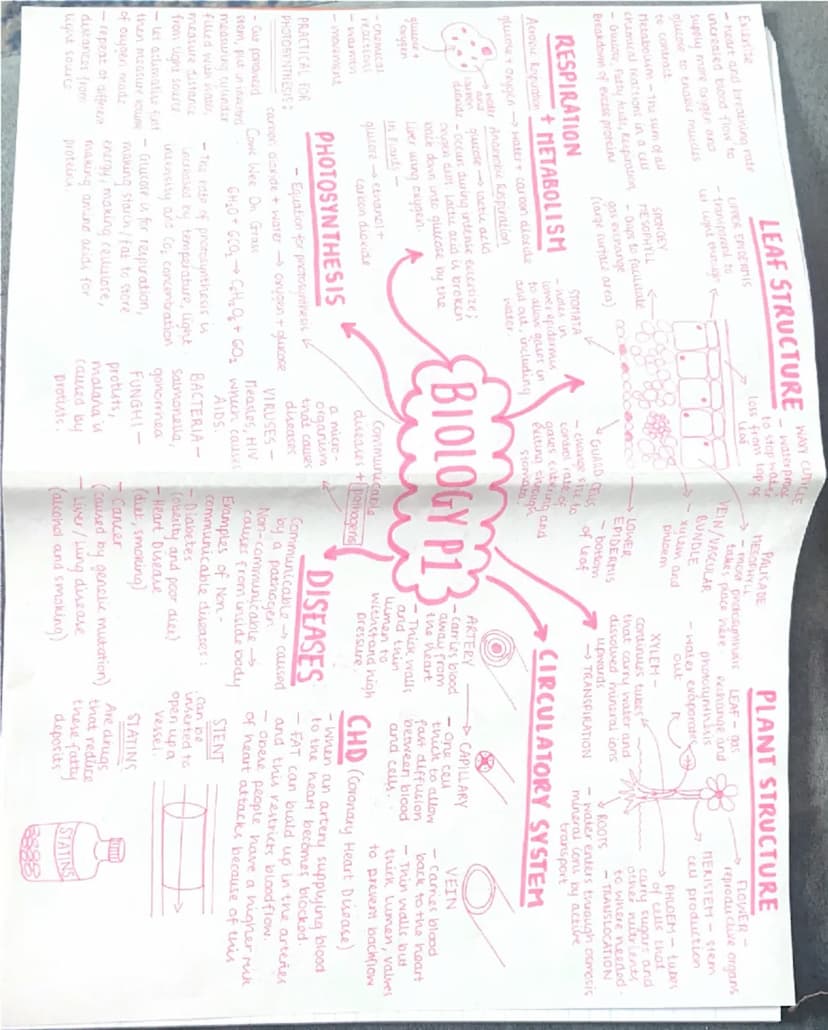 LEAF STRUCTURE
WAXY CUTICLE
- waterproof
to stop water
loss from top of
leaf
UPPER EPIDERMIS
- transparent to
let light through
PALISADE
MESOPHYLL
- most photosynthesis
takes place here
SPONGEY
MESOPHYLL
- Gaps to facilitate
gas exchange
(large surface area)
VEIN/VASCULAR
BUNDLE
- xylem and
phloem
STOMATA
- holes in
lower epidermis
to allow gases in
and out, including
water.
GUARD CELLS
- change size to
control rate of
gases entering and
exiting through
stomata
LOWER
EPIDERMIS
- bottom
of leaf
PLANT STRUCTURE
FLOWER -
reproductive organs
LEAF - gas
exchange and
photosynthesis
- water evaporates
out
MERISTEM - stem
cell production
XYLEM -
continuous tubes
that carry water and
dissolved mineral ions
upwards
→ TRANSPIRATION
PHLOEM - tubes
of cells that
carry sugar and
other nutrients
to where needed.
- TRANSLOCATION
ROOTS
- water enters through osmosis
mineral ions by active
transport
Exercise
- Heart and breathing rate
increases blood flow to
supply more oxygen and
glucose to enable muscles
to contract
Metabolism - The sum of all
chemical reactions in a cell
- Glucose, Fatty Acids, Respiration,
Breakdown of excess proteins
RESPIRATION
+ METABOLISM
Aerobic Respiration
glucose + oxygen → water + carbon dioxide
glucose +
oxygen
water
and
carbon
dioxide
- chemical
reactions
- warmth
- movement
Anaerobic Respiration
glucose → lactic acid
- occurs during intense exercise;
oxygen debt. Lactic acid is broken
back down into glucose by the
liver using oxygen.
In Plants -
glucose → ethanol +
carbon dioxide
BIOLOGY P1
CIRCULATORY SYSTEM
ARTERY
- carries blood
away from
the heart
- Thick walls
and thin
lumen to
withstand high
pressure.
CAPILLARY
- One cell
thick to allow
fast diffusion
between blood
and cells.
VEIN
- Carries blood
back to the heart
- Thin walls but
thick lumen, valves
to prevent backflow
PHOTOSYNTHESIS
- Equation for photosynthesis
carbon dioxide + water → oxygen + glucose
Come Wee On Grass
6H₂O + 6CO₂ → C₆H₁₂O₆ + 6O₂
- The rate of photosynthesis is
increased by temperature, light
intensity and CO₂ concentration
- Glucose is for respiration,
making starch/fat to store
energy, making cellulose,
making amino acids for
proteins
PRACTICAL FOR
PHOTOSYNTHESIS:
- Cut pondweed
stem, put in inverted
measuring cylinder
filled with water
measure distance
from light source
- Let acclimatise first
then measure volume
of oxygen made
- repeat at different
distances from
light source
DISEASES
Communicable
diseases + pathogens
a micro-
organism
that causes
diseases
VIRUSES -
Measles, HIV
which causes
AIDS.
BACTERIA -
salmonella,
gonorrhea
FUNGHI -
protists,
malaria is
caused by
protists.
Communicable → caused
by a pathogen
Non-communicable →
causes from inside body
Examples of Non-
communicable diseases:
- Diabetes
(obesity and poor diet)
- Heart Disease
(diet, smoking)
- Cancer
(caused by genetic mutation)
- Liver/lung disease
(alcohol and smoking)
CHD (Coronary Heart Disease)
- When an artery supplying blood
to the heart becomes blocked.
- FAT can build up in the arteries
and this restricts bloodflow.
- Obese people have a higher risk
of heart attacks because of this
STENT
can be
inserted to
open up a
vessel.
STATINS
Are drugs
that reduce
these fatty
deposits
STATINS